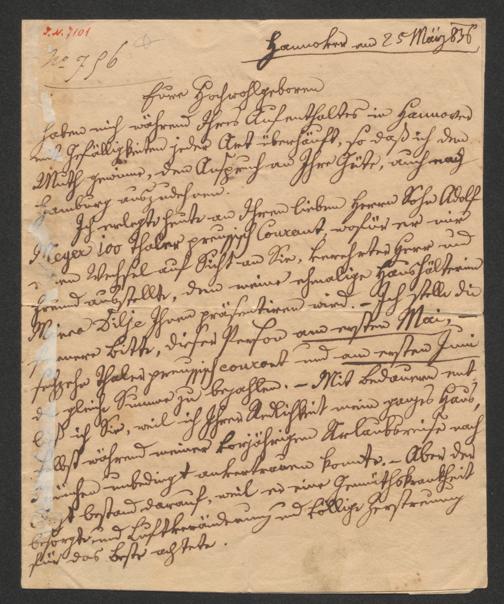 J.N. 7101
No 796
Hannover am 25 März 836
Eure Hochwohlgeboren
haben mich während Ihres Aufenthaltes in Hannover
mit Gefälligkeiten jeder Art überhäuft, so daß ich den
Muth gewinne, den Anspruch an Ihre Güte, auch nach
Hamburg auszudehnen.
Ich erlegte heute an Ihren lieben Herrn Sohn Adolf
Meyer 100 Thaler preussisch Courant wofür er mir
einen Wechsel auf Sicht an Sie, verehrtester Herr und
Freund ausstellte, den meine ehmalige Haushälterin
Minea Dilje Ihnen präsentiren wird. – Ich stelle die
Bitte, dieser Person am ersten Mai,
sechzehn Thaler preussisch courant und am ersten Juni
die gleiche Summe zu bezahlen. – Mit Bedauern ent
ließ ich Sie, weil ich Ihrer Redlichkeit mein ganzes Haus,
selbst während meiner vorjährigen Urlaubsreise nach
München unbedingt anvertrauen konnte. – Aber der
Arzt bestand darauf, weil er eine Gemüthskrankheit
besorgte und Luftveränderung und völlige Zerstreuung
für das Beste achtete.